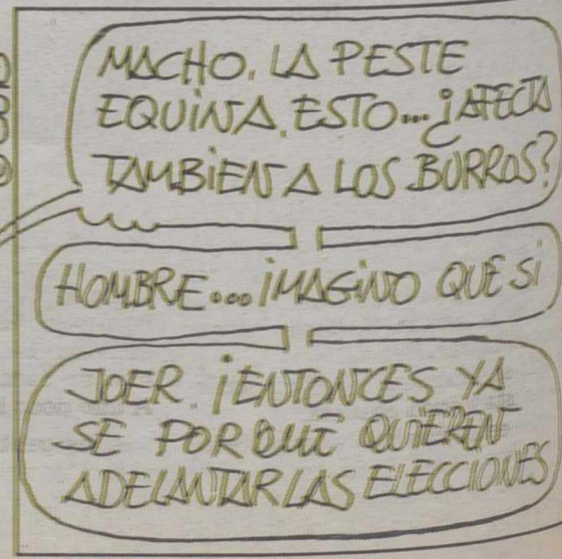 MACHO. LA PESTE
EQUINA. ESTO... ¿AFECTA
TAMBIEN A LOS BURROS?
HOMBRE... IMAGINO QUE SI
JOER. ¡ENTONCES YA
SE POR QUE QUIEREN
ADELANTAR LAS ELECCIONES